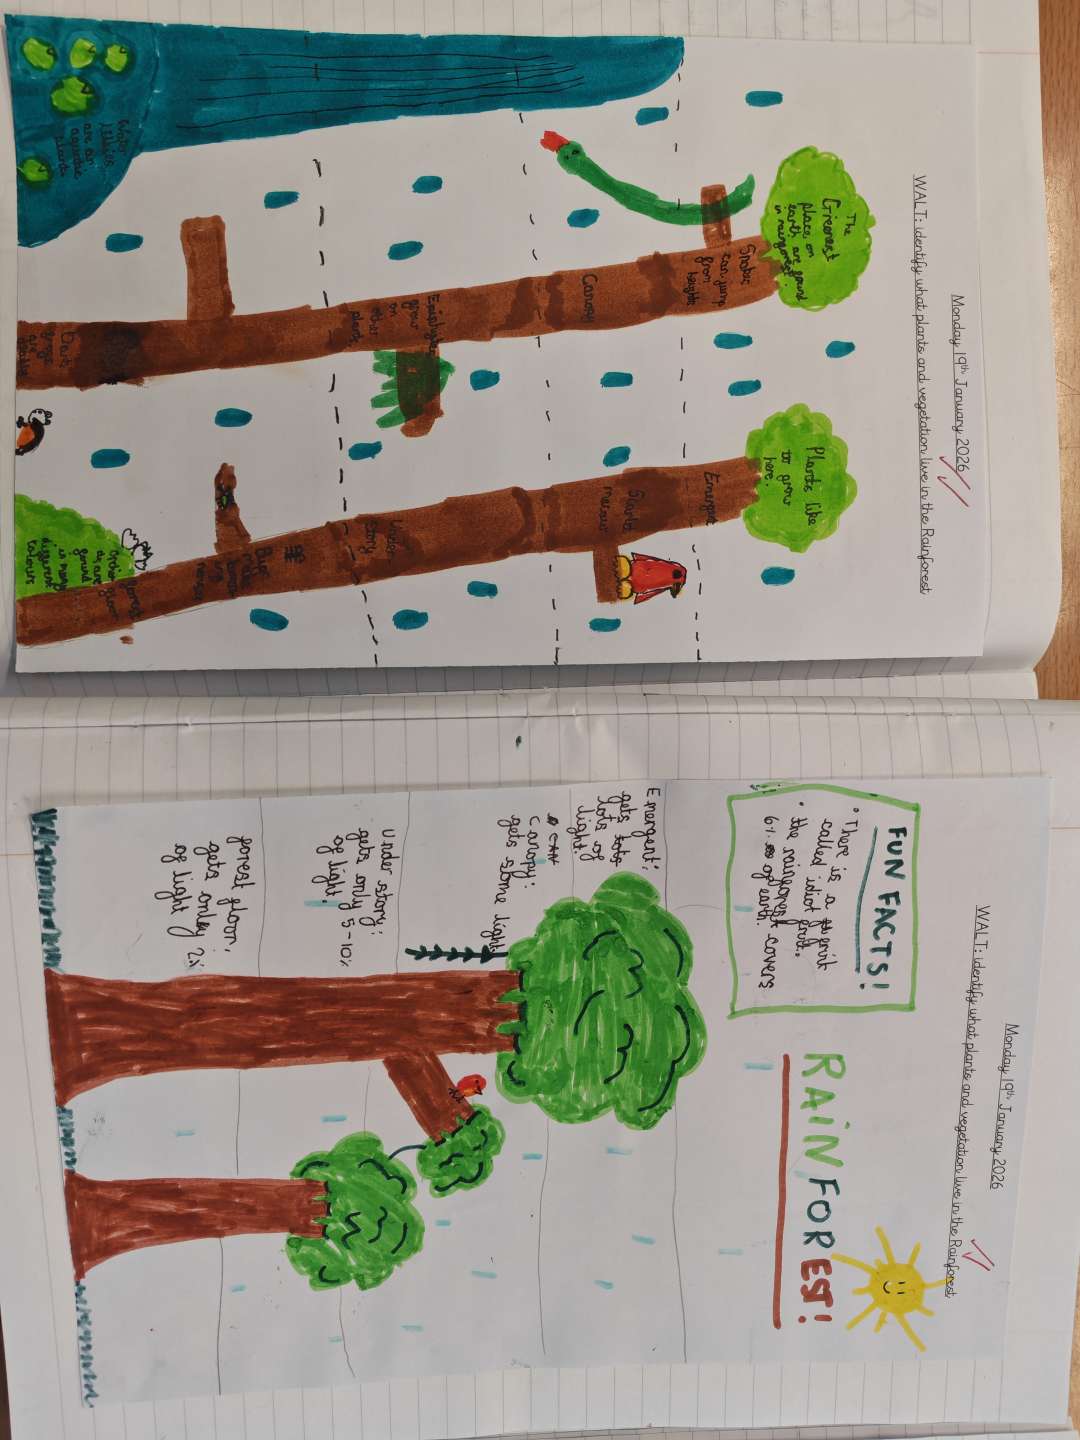 Monday 19th January 2026
WALT: identify what plants and vegetation live in the Rainforest
The
Greenest
place on
earth are found
in rainforest.
Plants like
to grow
here.
Snakes
can jump
from
heights
Emergent
Scarlet
Canopy
Epiphytes
grow
on
other
plant
Under
story
Water
lillies
are an
aquatic
plants
forest
floor
Orchids
as are
found
in many
different
colours
Monday 19th January 2026
WALT: identify what plants and vegetation live in the Rainforest
FUN FACTS!
• There is a fruit
called idiot fruit.
• the rainforest covers
6% of earth.
RAINFOREST!
Emergent:
gets lots
lots of
light.
Canopy:
gets some light
Under story:
gets only 5-10%
of light.
forest floor:
gets only 2%
of light